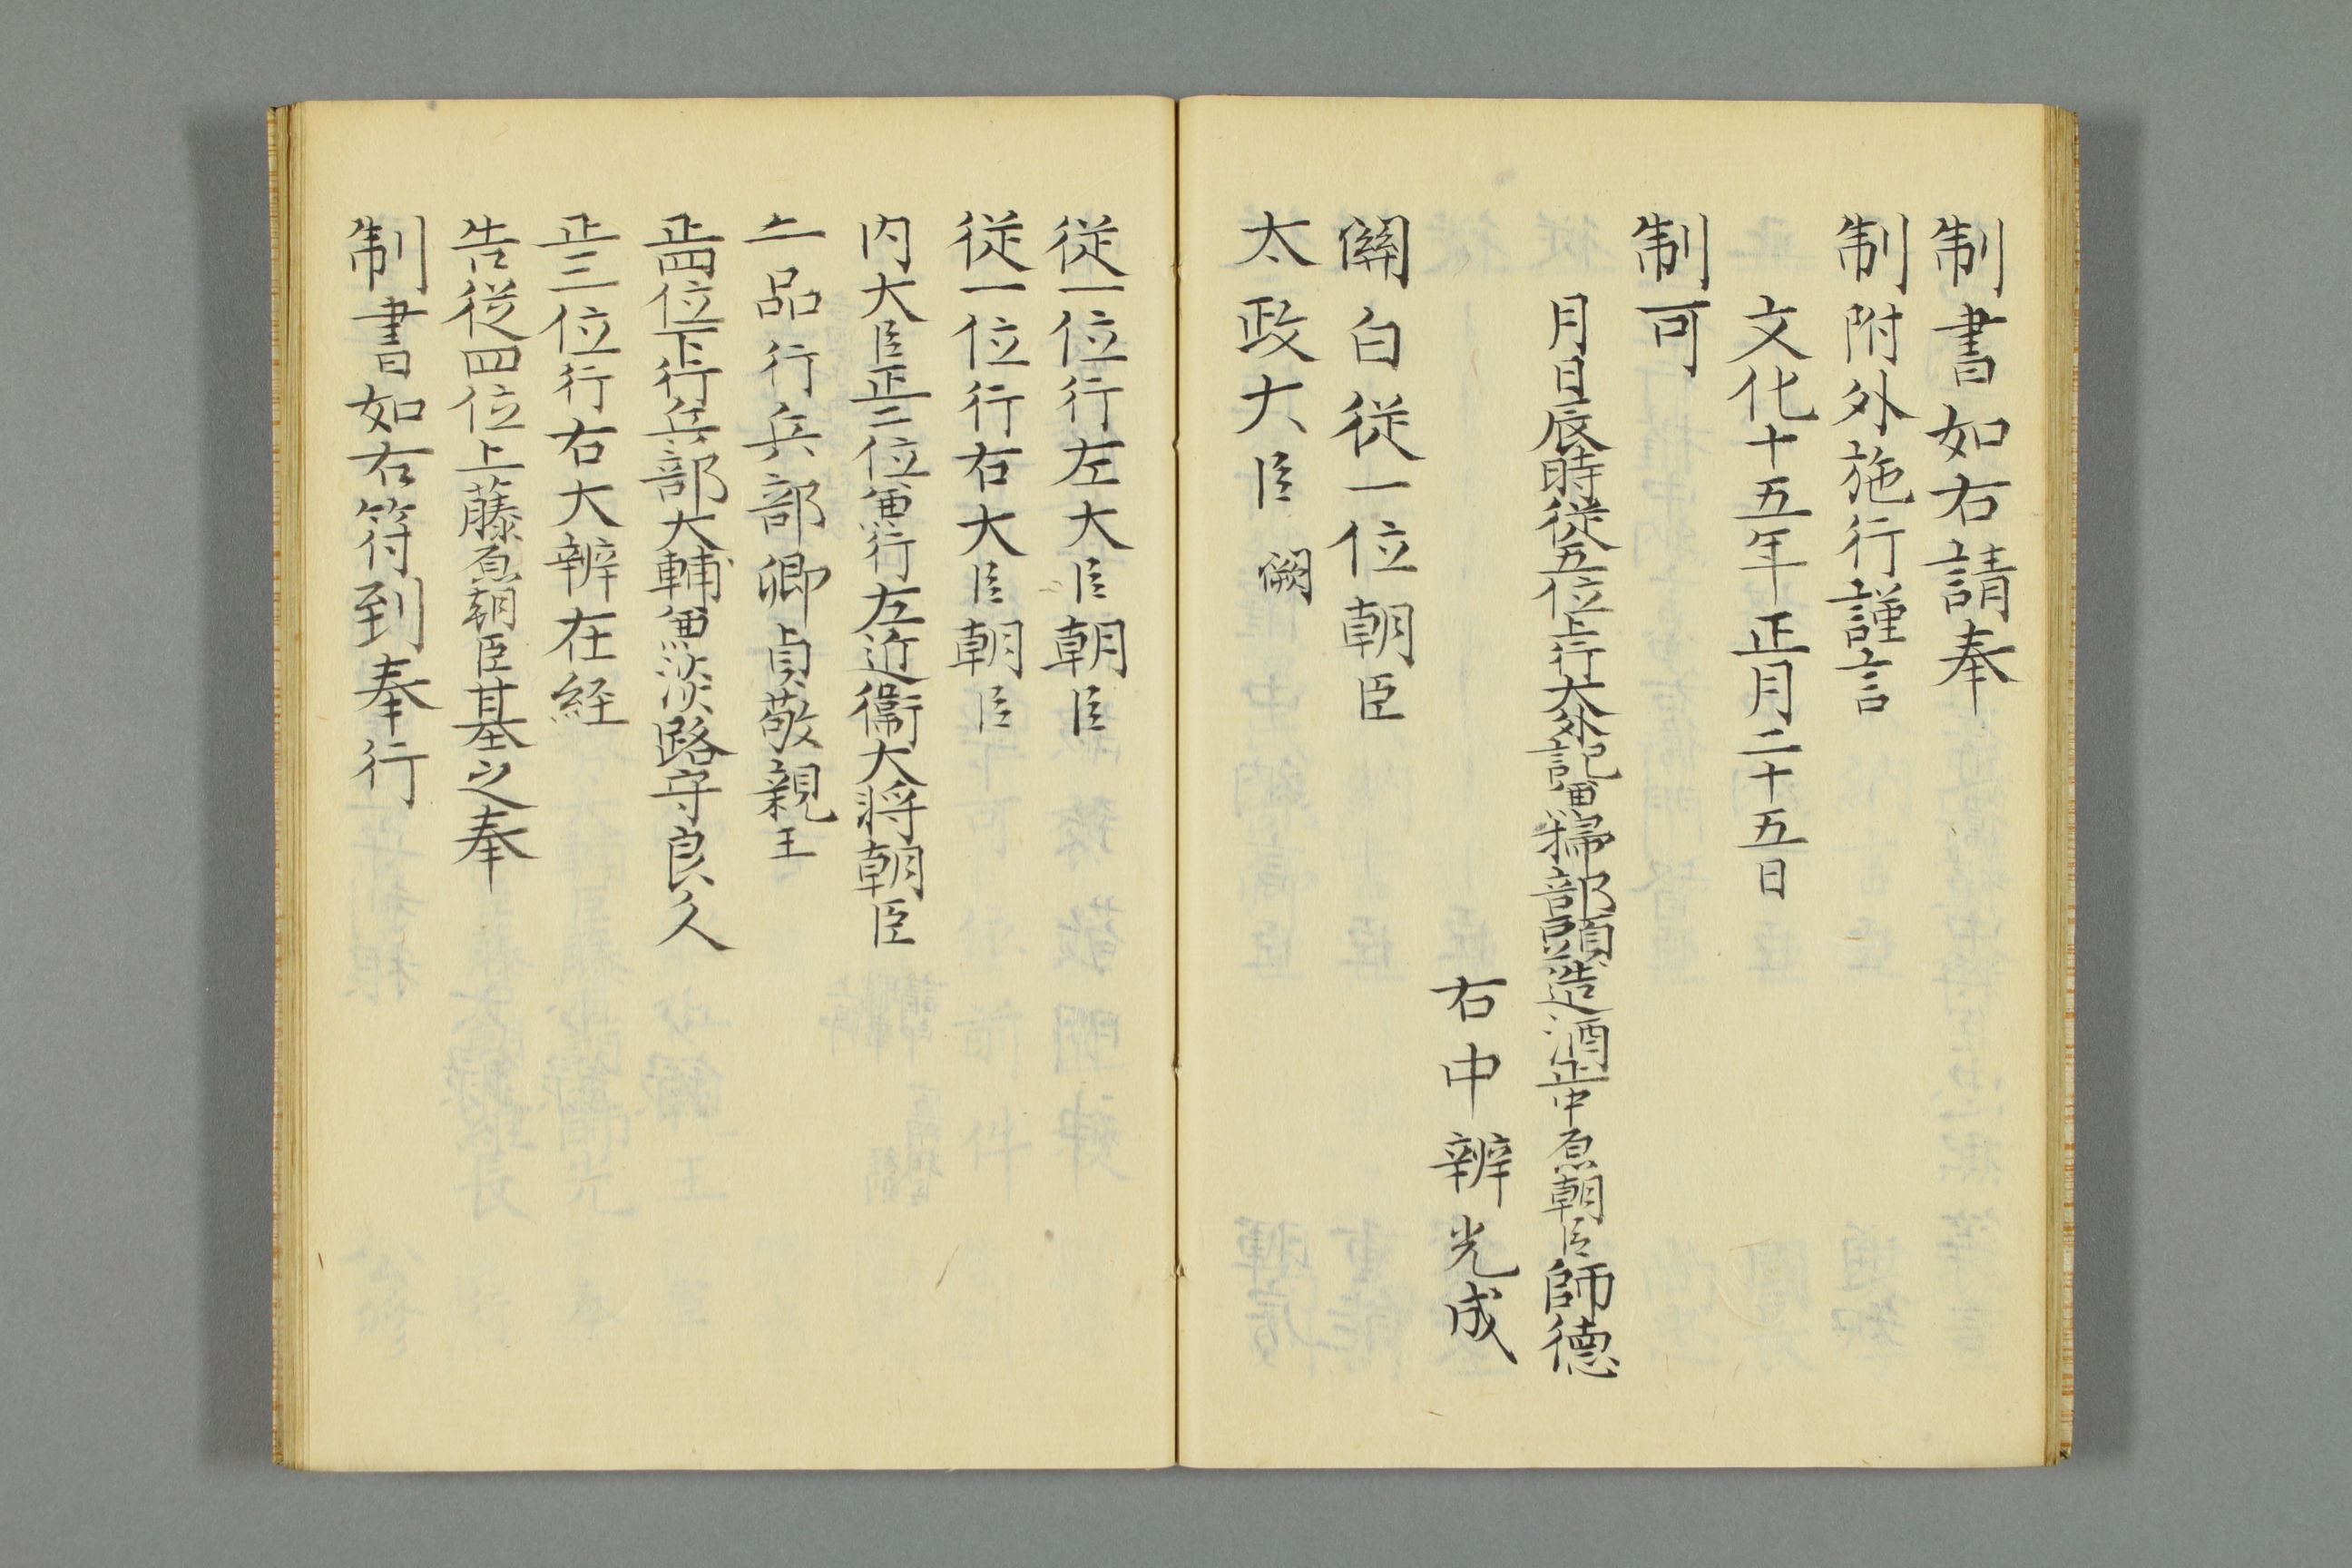 制書如右請奉
制附外施行謹言
文化十五年正月二十五日
制可
月日辰時従五位上行大外記兼掃部頭造酒正中原朝臣師德
右中辨光成
關白従一位朝臣
太政大臣 闕
従一位行左大臣朝臣
従一位行右大臣朝臣
内大臣正二位兼行左近衞大将朝臣
二品行兵部卿貞敬親王
正四位下行兵部大輔兼淡路守良久
正三位行右大辨在経
告従四位上藤原朝臣基之奉
制書如右符到奉行